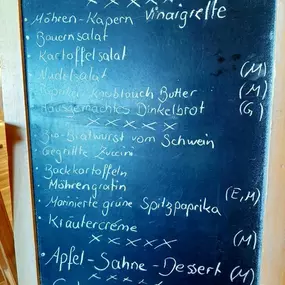 x x x x x x
· Möhren-Kapern Vinaigrette
· Bauernsalat
· Kartoffelsalat
· Nudelsalat (M)
· Paprika-Knoblauch Butter (M)
· Hausgemachtes Dinkelbrot (G)
x x x x x
· Bio-Bratwurst vom Schwein
· Gegrillte Zuccini
· Backkartoffeln
· Möhrengratin (E,M)
· Marinierte grüne Spitzpaprika
· Kräutercréme (M)
x x x x x
· Apfel-Sahne-Dessert (M)
x x x x x